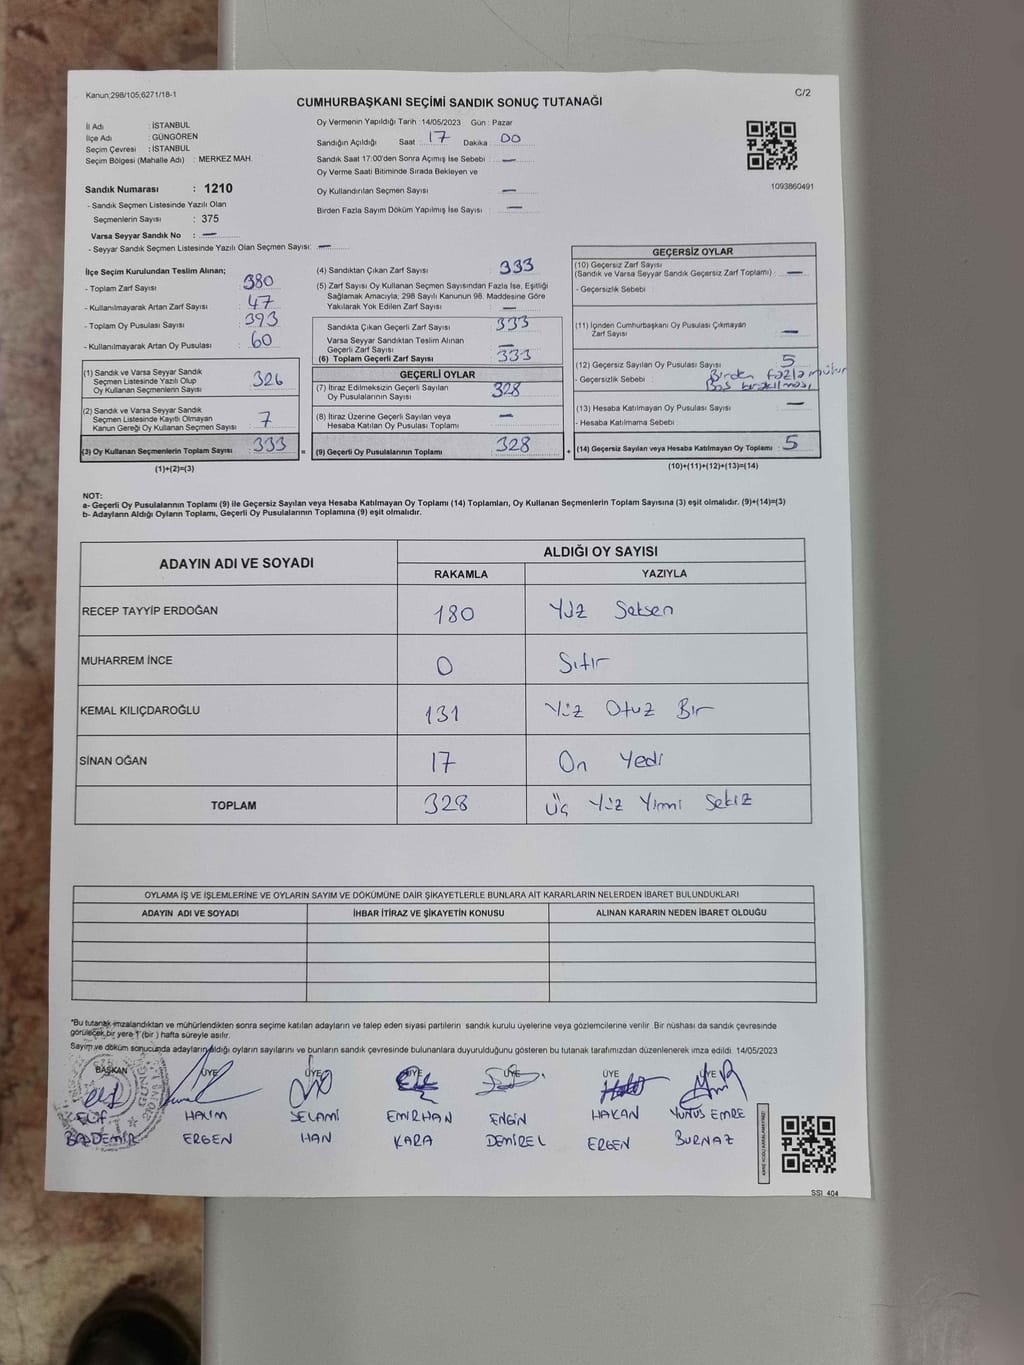 Kanun:298/105,6271/18-1
C/2
CUMHURBAŞKANI SEÇİMİ SANDIK SONUÇ TUTANAĞI
İl Adı : İSTANBUL
İlçe Adı : GÜNGÖREN
Seçim Çevresi : İSTANBUL
Seçim Bölgesi (Mahalle Adı) : MERKEZ MAH.
Sandık Numarası : 1210
- Sandık Seçmen Listesinde Yazılı Olan
Seçmenlerin Sayısı : 375
Varsa Seyyar Sandık No : —
- Seyyar Sandık Seçmen Listesinde Yazılı Olan Seçmen Sayısı: —
Oy Vermenin Yapıldığı Tarih : 14/05/2023 Gün : Pazar
Sandığın Açıldığı Saat 17 Dakika 00
Sandık Saat 17:00'den Sonra Açımış İse Sebebi : —
Oy Verme Saati Bitiminde Sırada Bekleyen ve
Oy Kullandırılan Seçmen Sayısı —
Birden Fazla Sayım Döküm Yapılmış İse Sayısı : —
1093860491
İlçe Seçim Kurulundan Teslim Alınan;
- Toplam Zarf Sayısı : 380
- Kullanılmayarak Artan Zarf Sayısı : 47
- Toplam Oy Pusulası Sayısı : 393
- Kullanılmayarak Artan Oy Pusulası : 60
(1) Sandık ve Varsa Seyyar Sandık
Seçmen Listesinde Yazılı Olup
Oy Kullanan Seçmenlerin Sayısı 326
(2) Sandık ve Varsa Seyyar Sandık
Seçmen Listesinde Kayıtlı Olmayan
Kanun Gereği Oy Kullanan Seçmen Sayısı 7
(3) Oy Kullanan Seçmenlerin Toplam Sayısı 333
(1)+(2)=(3)
(4) Sandıktan Çıkan Zarf Sayısı : 333
(5) Zarf Sayısı Oy Kullanan Seçmen Sayısından Fazla İse, Eşitliği
Sağlamak Amacıyla; 298 Sayılı Kanunun 98. Maddesine Göre
Yakılarak Yok Edilen Zarf Sayısı : —
Sandıkta Çıkan Geçerli Zarf Sayısı 333
Varsa Seyyar Sandıktan Teslim Alınan
Geçerli Zarf Sayısı —
(6) Toplam Geçerli Zarf Sayısı 333
GEÇERLİ OYLAR
(7) İtiraz Edilmeksizin Geçerli Sayılan
Oy Pusulalarının Sayısı 328
(8) İtiraz Üzerine Geçerli Sayılan veya
Hesaba Katılan Oy Pusulası Toplamı —
= (9) Geçerli Oy Pusulalarının Toplamı 328
GEÇERSİZ OYLAR
(10) Geçersiz Zarf Sayısı
(Sandık ve Varsa Seyyar Sandık Geçersiz Zarf Toplamı) : —
- Geçersizlik Sebebi :
(11) İçinden Cumhurbaşkanı Oy Pusulası Çıkmayan
Zarf Sayısı —
(12) Geçersiz Sayılan Oy Pusulası Sayısı 5
- Geçersizlik Sebebi : Birden fazla mühür
Boş bırakılması
(13) Hesaba Katılmayan Oy Pusulası Sayısı —
- Hesaba Katılmama Sebebi :
+ (14) Geçersiz Sayılan veya Hesaba Katılmayan Oy Toplamı 5
(10)+(11)+(12)+(13)=(14)
NOT:
a- Geçerli Oy Pusulalarının Toplamı (9) ile Geçersiz Sayılan veya Hesaba Katılmayan Oy Toplamı (14) Toplamları, Oy Kullanan Seçmenlerin Toplam Sayısına (3) eşit olmalıdır. (9)+(14)=(3)
b- Adayların Aldığı Oyların Toplamı, Geçerli Oy Pusulalarının Toplamına (9) eşit olmalıdır.
ADAYIN ADI VE SOYADI
ALDIĞI OY SAYISI
RAKAMLA YAZIYLA
RECEP TAYYİP ERDOĞAN 180 Yüz Seksen
MUHARREM İNCE 0 Sıfır
KEMAL KILIÇDAROĞLU 131 Yüz Otuz Bir
SİNAN OĞAN 17 On Yedi
TOPLAM 328 Üç Yüz Yirmi Sekiz
OYLAMA İŞ VE İŞLEMLERİNE VE OYLARIN SAYIM VE DÖKÜMÜNE DAİR ŞİKAYETLERLE BUNLARA AİT KARARLARIN NELERDEN İBARET BULUNDUKLARI
ADAYIN ADI VE SOYADI İHBAR İTİRAZ VE ŞİKAYETİN KONUSU ALINAN KARARIN NEDEN İBARET OLDUĞU
*Bu tutanak imzalandıktan ve mühürlendikten sonra seçime katılan adayların ve talep eden siyasi partilerin sandık kurulu üyelerine veya gözlemcilerine verilir. Bir nüshası da sandık çevresinde
görülecek bir yere 1 (bir) hafta süreyle asılır.
Sayım ve döküm sonucunda adayların aldığı oyların sayılarını ve bunların sandık çevresinde bulunanlara duyurulduğunu gösteren bu tutanak tarafımızdan düzenlenerek imza edildi. 14/05/2023
BAŞKAN ÜYE ÜYE ÜYE ÜYE ÜYE ÜYE
ELİF HALİM SELAMİ EMİRHAN ENGİN HAKAN YUNUS EMRE
ERGEN HAN KARA DEMİREL ERGEN BURNAZ
SSI_404